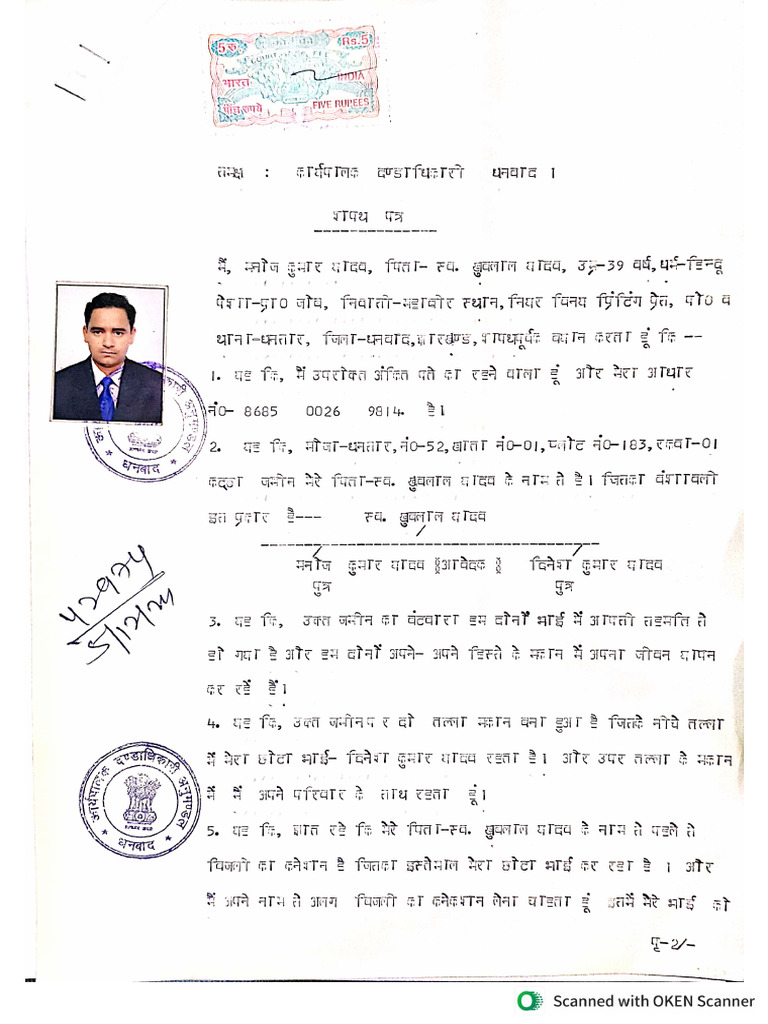 5 रु. Rs.5
COURT FEE
भारत INDIA
पाँच रुपये FIVE RUPEES
समक्ष : कार्यपालक दण्डाधिकारी धनबाद ।
शपथ पत्र
मैं, मनोज कुमार यादव, पिता- स्व. खुबलाल यादव, उम्र-39 वर्ष, धर्म-हिन्दू
पेशा-प्रा0 जोब, निवासी-महावीर स्थान, नियर विनय प्रिंटिंग प्रेस, पो0 व
थाना-धनसार, जिला-धनबाद, झारखण्ड, शपथपूर्वक बयान करता हूं कि --
1. यह कि, मैं उपरोक्त अंकित पते का रहने वाला हूं और मेरा आधार
नं0- 8685 0026 9814. है।
2. यह कि, मौजा-धनसार, नं0-52, खाता नं0-01, प्लोट नं0-183, रकवा-01
कट्ठा जमीन मेरे पिता-स्व. खुबलाल यादव के नाम से है। जिसका वंशावली
इस प्रकार है--- स्व. खुबलाल यादव
मनोज कुमार यादव (आवेदक) दिनेश कुमार यादव
पुत्र पुत्र
3. यह कि, उक्त जमीन का बंटवारा हम दोनों भाई में आपसी सहमति से
हो गया है और हम दोनों अपने- अपने हिस्से के मकान में अपना जीवन यापन
कर रहें हैं।
4. यह कि, उक्त जमीन पर दो तल्ला मकान बना हुआ है जिसके नीचे तल्ला
में मेरा छोटा भाई- दिनेश कुमार यादव रहता है। और उपर तल्ला के मकान
में मैं अपने परिवार के साथ रहता हूं।
कार्यपालक दण्डाधिकारी अनुमण्डल
* धनबाद *
5. यह कि, ज्ञात रहे कि मेरे पिता-स्व. खुबलाल यादव के नाम से पहले से
बिजली का कनेशन है जिसका इस्तेमाल मेरा छोटा भाई कर रहा है । और
मैं अपने नाम से अलग बिजली का कनेकशन लेना चाहता हूं इसमें मेरे भाई को
पृ-2/-
Scanned with OKEN Scanner